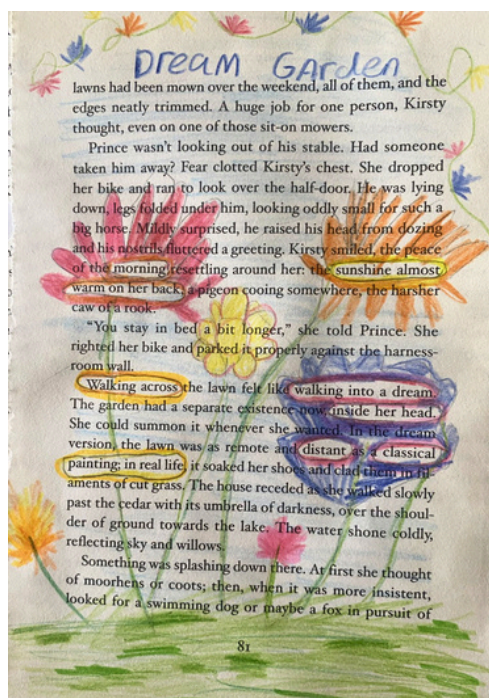 Dream Garden
lawns had been mown over the weekend, all of them, and the
edges neatly trimmed. A huge job for one person, Kirsty
thought, even on one of those sit-on mowers.
Prince wasn't looking out of his stable. Had someone
taken him away? Fear clotted Kirsty's chest. She dropped
her bike and ran to look over the half-door. He was lying
down, legs folded under him, looking oddly small for such a
big horse. Mildly surprised, he raised his head from dozing
and his nostrils fluttered a greeting. Kirsty smiled, the peace
of the morning resettling around her: the sunshine almost
warm on her back, a pigeon cooing somewhere, the harsher
caw of a rook.
"You stay in bed a bit longer," she told Prince. She
righted her bike and parked it properly against the harness-
room wall.
Walking across the lawn felt like walking into a dream.
The garden had a separate existence now, inside her head.
She could summon it whenever she wanted. In the dream
version, the lawn was as remote and distant as a classical
painting; in real life, it soaked her shoes and clad them in fil-
aments of cut grass. The house receded as she walked slowly
past the cedar with its umbrella of darkness, over the shoul-
der of ground towards the lake. The water shone coldly,
reflecting sky and willows.
Something was splashing down there. At first she thought
of moorhens or coots; then, when it was more insistent,
looked for a swimming dog or maybe a fox in pursuit of
81